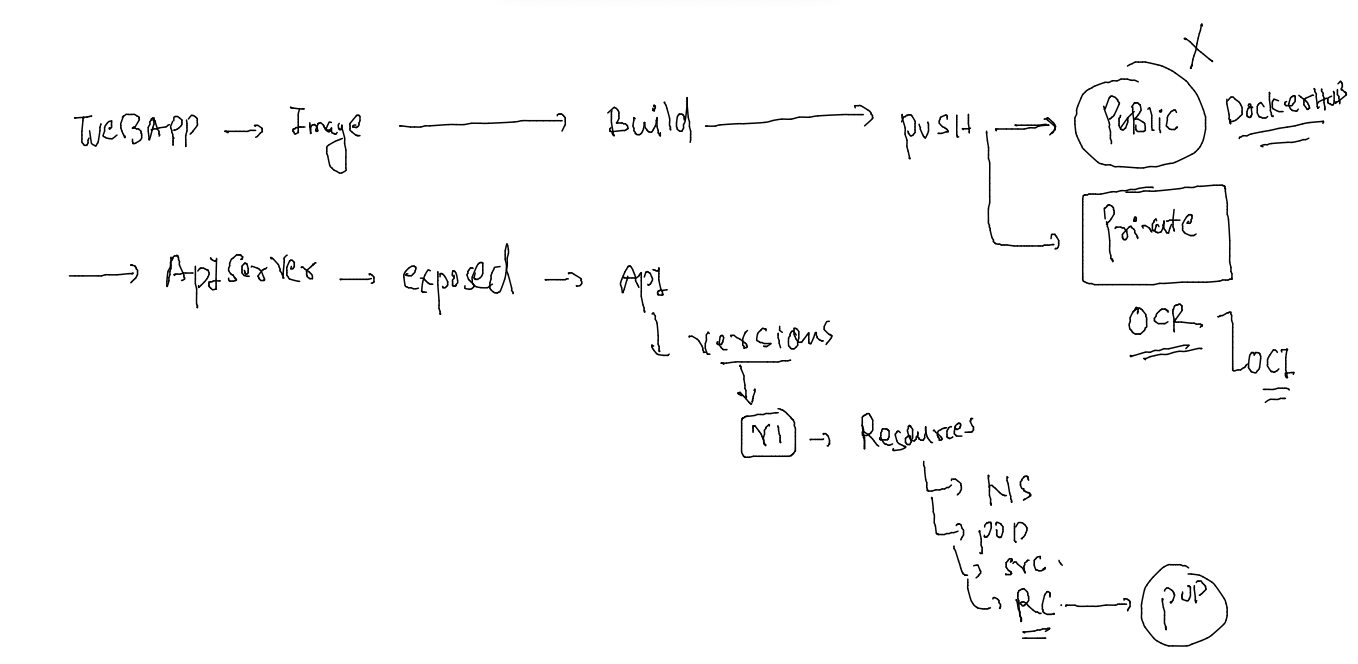 X
WEBAPP → Image → Build → PUSH → PUBLIC DockerHub
Private
→ ApI Server → exposed → ApI
OCR
versions
OCI
V1 → Resources
NS
POD
svc.
RC → POD